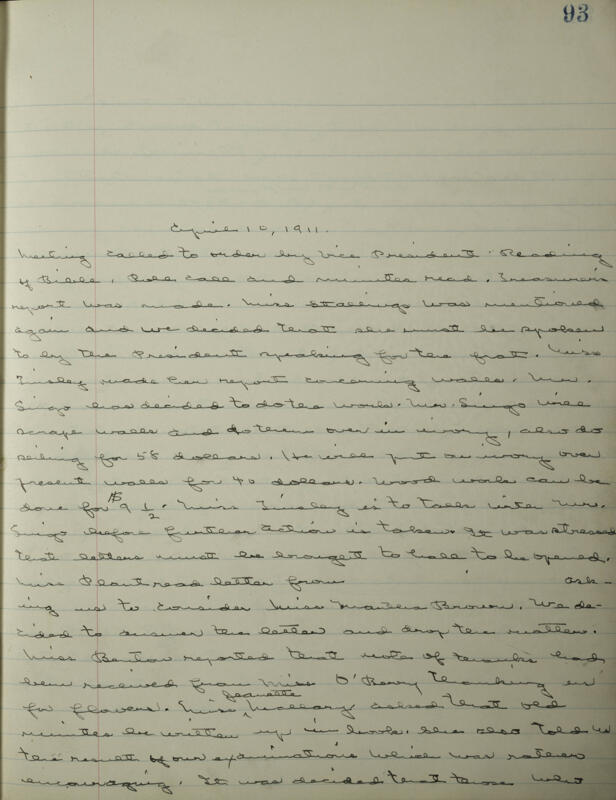 93
April 10, 1911.
Meeting called to order by Vice President. Reading
of Bible, Roll call and minutes read. Treasurer's
report was made. Miss Stallings was mentioned
again and we decided that she must be spoken
to by the President speaking for the frat. Miss
Tinsley made her report concerning walls. Mr.
Singo has decided to do the work. Mr. Singo will
scrape walls and do them over in ivory, also do
ceiling for 58 dollars. He will put on ivory over
present walls for 40 dollars. Wood work can be
done for $9 1/2. Miss Tinsley is to talk with Mr.
Singo before further action is taken. It was stressed
that letters must be brought to hall to be opened.
Miss Plant read letter from ask-
ing us to consider Miss Brown. We de-
cided to answer the letter and drop the matter.
Miss Benton reported that note of thanks had
been received from Miss O'Berry thanking us
for flowers. Miss Jeanette Mallary asked that old
minutes be written up in book. She also told us
the result of our examinations which was rather
encouraging. It was decided that those who